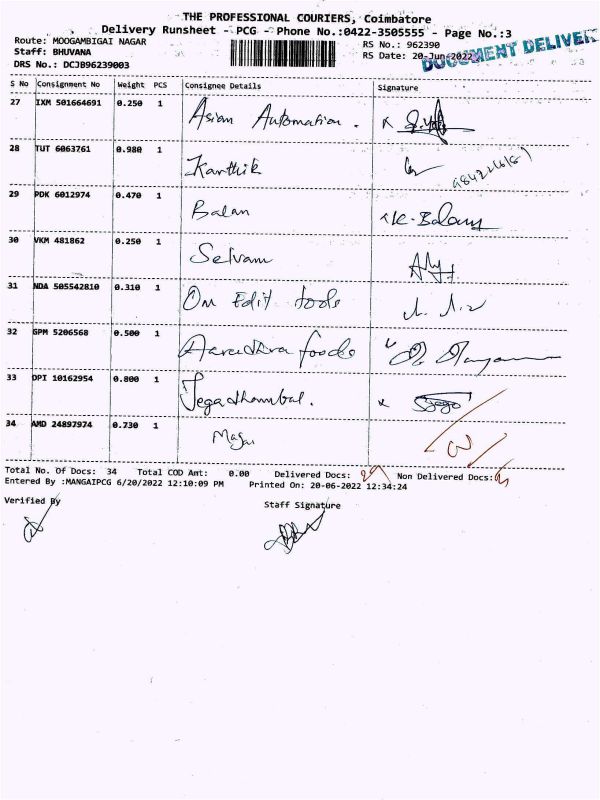 THE PROFESSIONAL COURIERS, Coimbatore
Delivery Runsheet - PCG - Phone No.:0422-3505555 - Page No.:3
Route: MOOGAMBIGAI NAGAR RS No.: 962390
Staff: BHUVANA RS Date: 20-Jun-2022
DOCUMENT DELIVER
DRS No.: DCJB96239003
S No Consignment No Weight PCS Consignee Details Signature
27 IXM 501664691 0.250 1 Asian Automation.
28 TUT 6063761 0.980 1 Karthik
29 PDK 6012974 0.470 1 Balan K. Balan
30 VKM 481862 0.250 1 Selvam
31 NDA 505542810 0.310 1 Om Edit tools
32 GPM 5206568 0.500 1 Aarudhra foods
33 DPI 10162954 0.800 1 Jegadhambal.
34 AMD 24897974 0.730 1
Total No. Of Docs: 34 Total COD Amt: 0.00 Delivered Docs: Non Delivered Docs:
Entered By :MANGAIPCG 6/20/2022 12:10:09 PM Printed On: 20-06-2022 12:34:24
Verified By Staff Signature